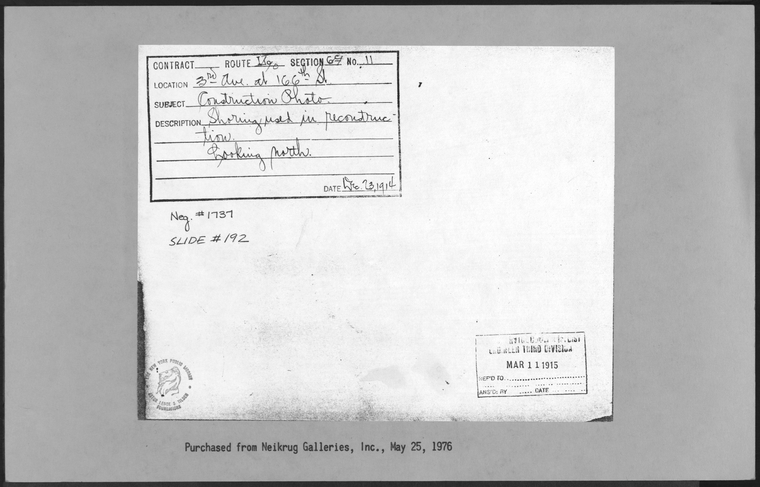 CONTRACT ROUTE SECTION NO. 11
LOCATION 3rd Ave. at 166th St.
SUBJECT Construction Photo.
DESCRIPTION Shoring used in reconstruc-
tion.
Looking north.
DATE Dec. 23, 1914
Neg. #1737
SLIDE #192
ENGINEER THIRD DIVISION
MAR 11 1915
REP'D TO
ANS'D BY DATE
NEW YORK PUBLIC LIBRARY
Purchased from Neikrug Galleries, Inc., May 25, 1976